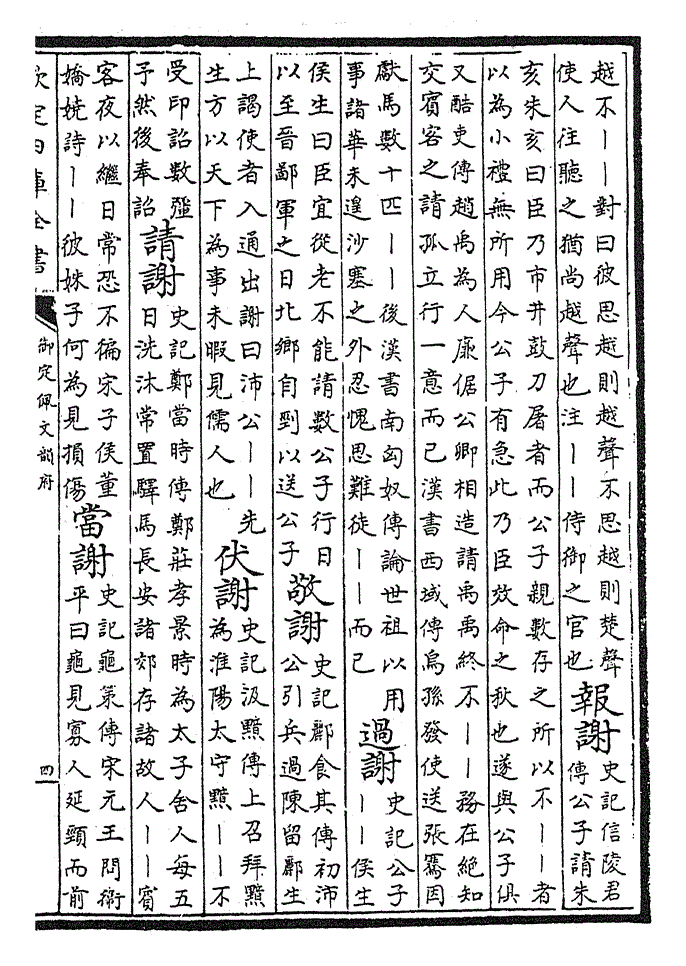 越不――對曰彼思越則越聲不思越則楚聲
使人往聽之猶尚越聲也注――侍御之官也
報謝
史記信陵君
傳公子請朱
亥朱亥曰臣乃市井鼓刀屠者而公子親數存之所以不――者
以為小禮無所用今公子有急此乃臣效命之秋也遂與公子俱
又酷吏傳趙禹為人廉倨公卿相造請禹禹終不――務在絶知
交賓客之請孤立行一意而已漢書西域傳烏孫發使送張騫因
獻馬數十匹――後漢書南匈奴傳論世祖以用
事諸華未遑沙塞之外忍愧思難徒――而已
過謝
史記公子
――侯生
侯生曰臣宜從老不能請數公子行日
以至晉鄙軍之日北鄉自剄以送公子
敬謝
史記酈食其傳初沛
公引兵過陳留酈生
上謁使者入通出謝曰沛公――先
生方以天下為事未暇見儒人也
伏謝
史記汲黯傳上召拜黯
為淮陽太守黯――不
受印詔數彊
予然後奉詔
請謝
史記鄭當時傳鄭莊孝景時為太子舍人每五
日洗沐常置驛馬長安諸郊存諸故人――賓
客夜以繼日常恐不徧宋子侯董
嬌嬈詩――彼姝子何為見損傷
當謝
史記龜策傳宋元王問衛
平曰龜見寡人延頸而前
欽定四庫全書
御定佩文韻府
四